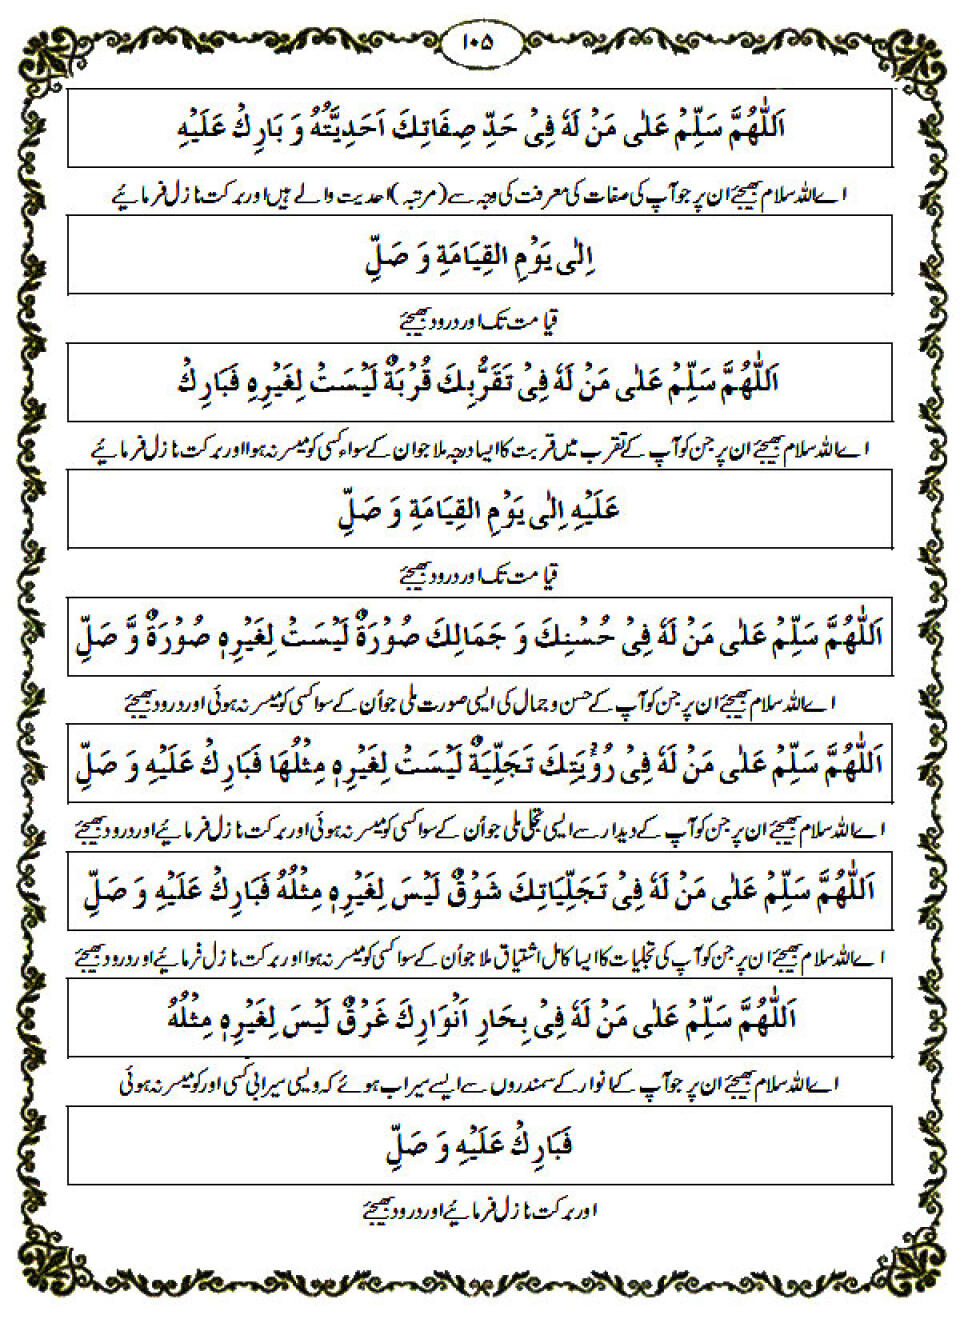 ۱۰۵
اَللّٰهُمَّ سَلِّمۡ عَلٰی مَنۡ لَهٗ فِیۡ حَدِّ صِفَاتِكَ اَحَدِيَّتُهُ وَ بَارِكۡ عَلَيۡهِ
اے اللہ سلام بھیجئے ان پر جو آپ کی صفات کی معرفت کی وجہ سے (مرتبہ) احدیت والے ہیں اور برکت نازل فرمائیے
اِلٰی يَوۡمِ القِيَامَةِ وَ صَلِّ
قیامت تک اور درود بھیجئے
اَللّٰهُمَّ سَلِّمۡ عَلٰی مَنۡ لَهٗ فِیۡ تَقَرُّبِكَ قُرۡبَةٌ لَيۡسَتۡ لِغَيۡرِهِ فَبَارِكۡ
اے اللہ سلام بھیجئے ان پر جن کو آپ کے تقرب میں قربت کا ایسا درجہ ملا جو ان کے سواء کسی کو میسر نہ ہوا اور برکت نازل فرمائیے
عَلَيۡهِ اِلٰی يَوۡمِ القِيَامَةِ وَ صَلِّ
قیامت تک اور درود بھیجئے
اَللّٰهُمَّ سَلِّمۡ عَلٰی مَنۡ لَهٗ فِیۡ حُسۡنِكَ وَ جَمَالِكَ صُوۡرَةٌ لَيۡسَتۡ لِغَيۡرِهٖ صُوۡرَةٌ وَّ صَلِّ
اے اللہ سلام بھیجئے ان پر جن کو آپ کے حسن و جمال کی ایسی صورت ملی جو اُن کے سوا کسی کو میسر نہ ہوئی اور درود بھیجئے
اَللّٰهُمَّ سَلِّمۡ عَلٰی مَنۡ لَهٗ فِیۡ رُؤۡيَتِكَ تَجَلِّيَةٌ لَيۡسَتۡ لِغَيۡرِهٖ مِثۡلُهَا فَبَارِكۡ عَلَيۡهِ وَ صَلِّ
اے اللہ سلام بھیجئے ان پر جن کو آپ کے دیدار سے ایسی تجلی ملی جو اُن کے سوا کسی کو میسر نہ ہوئی اور برکت نازل فرمائیے اور درود بھیجئے
اَللّٰهُمَّ سَلِّمۡ عَلٰی مَنۡ لَهٗ فِیۡ تَجَلِّيَاتِكَ شَوۡقٌ لَيۡسَ لِغَيۡرِهٖ مِثۡلُهُ فَبَارِكۡ عَلَيۡهِ وَ صَلِّ
اے اللہ سلام بھیجئے ان پر جن کو آپ کی تجلیات کا ایسا کامل اشتیاق ملا جو اُن کے سوا کسی کو میسر نہ ہوا اور برکت نازل فرمائیے اور درود بھیجئے
اَللّٰهُمَّ سَلِّمۡ عَلٰی مَنۡ لَهٗ فِیۡ بِحَارِ اَنۡوَارِكَ غَرۡقٌ لَيۡسَ لِغَيۡرِهٖ مِثۡلُهُ
اے اللہ سلام بھیجئے ان پر جو آپ کے انوار کے سمندروں سے ایسے سیراب ہوئے کہ ویسی سیرابی کسی اور کو میسر نہ ہوئی
فَبَارِكۡ عَلَيۡهِ وَ صَلِّ
اور برکت نازل فرمائیے اور درود بھیجئے